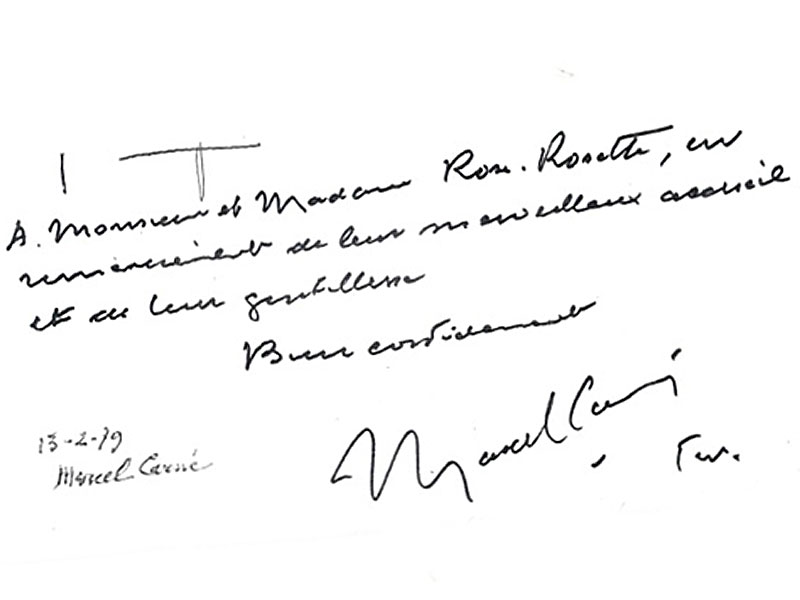 A. Monsieur et Madame Rose-Rosette, en
remerciement de leur merveilleux accueil
et de leur gentillesse
Bien cordialement
Marcel Carné
13-2-79
Marcel Carné